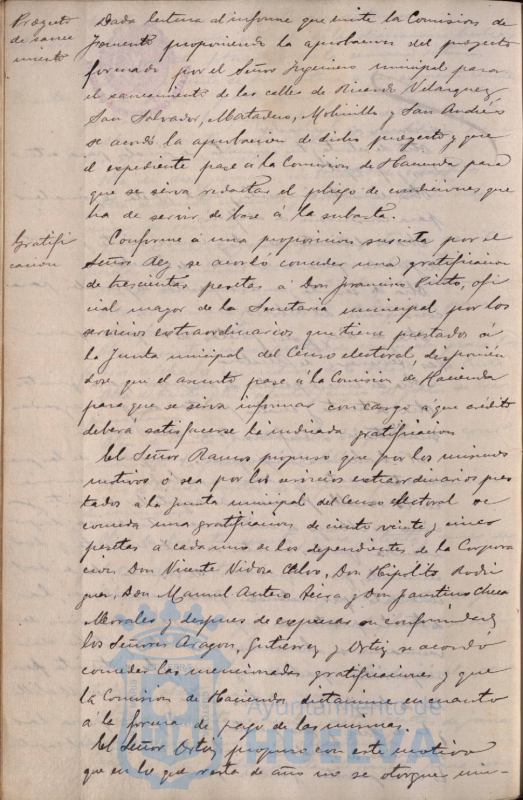 Proyecto
de sanea
miento
Dada lectura al informe que emite la Comision de
Fomento proponiendo la aprobacion del proyecto
formado por el Señor Ingeniero municipal para
el saneamiento de las calles de Ricardo Velazquez
San Salvador, Matadero, Molinillo y San Andrés
se acordó la aprobacion de dicho proyecto y que
el expediente pase á la Comision de Hacienda para
que se sirva redactar el pliego de condiciones que
ha de servir de base á la subasta.
Gratifi
cacion
Conforme á una proposicion suscrita por el
Señor Rey se acordó conceder una gratificacion
de trescientas pesetas á Don Francisco Pinto, ofi
cial mayor de la Secretaria municipal por los
servicios extraordinarios que tiene prestados á
la Junta municipal del Censo electoral, disponién
dose que el asunto pase á la Comision de Hacienda
para que se sirva informar con cargo á que crédito
deberá satisfacerse la indicada gratificacion
El Señor Ramos propuso que por los mismos
motivos ó sea por los servicios extraordinarios pres
tados á la Junta municipal del Censo electoral se
conceda una gratificacion de ciento veinte y cinco
pesetas á cada uno de los dependientes de la Corpora
cion Don Vicente Calvo, Don Hipolito Rodri
guez, Don Manuel Antero y Don Faustino
Morales y despues de expresar su conformidad
los Señores Aragon, Gutierrez y Ortiz se acordó
conceder las mencionadas gratificaciones y que
la Comision de Hacienda dictamine en cuanto
a la forma de pago de las mismas.
El Señor Ortiz propuso con este motivo
que en lo que resta de año no se otorguen mu-
Ayuntamiento de
HUELVA